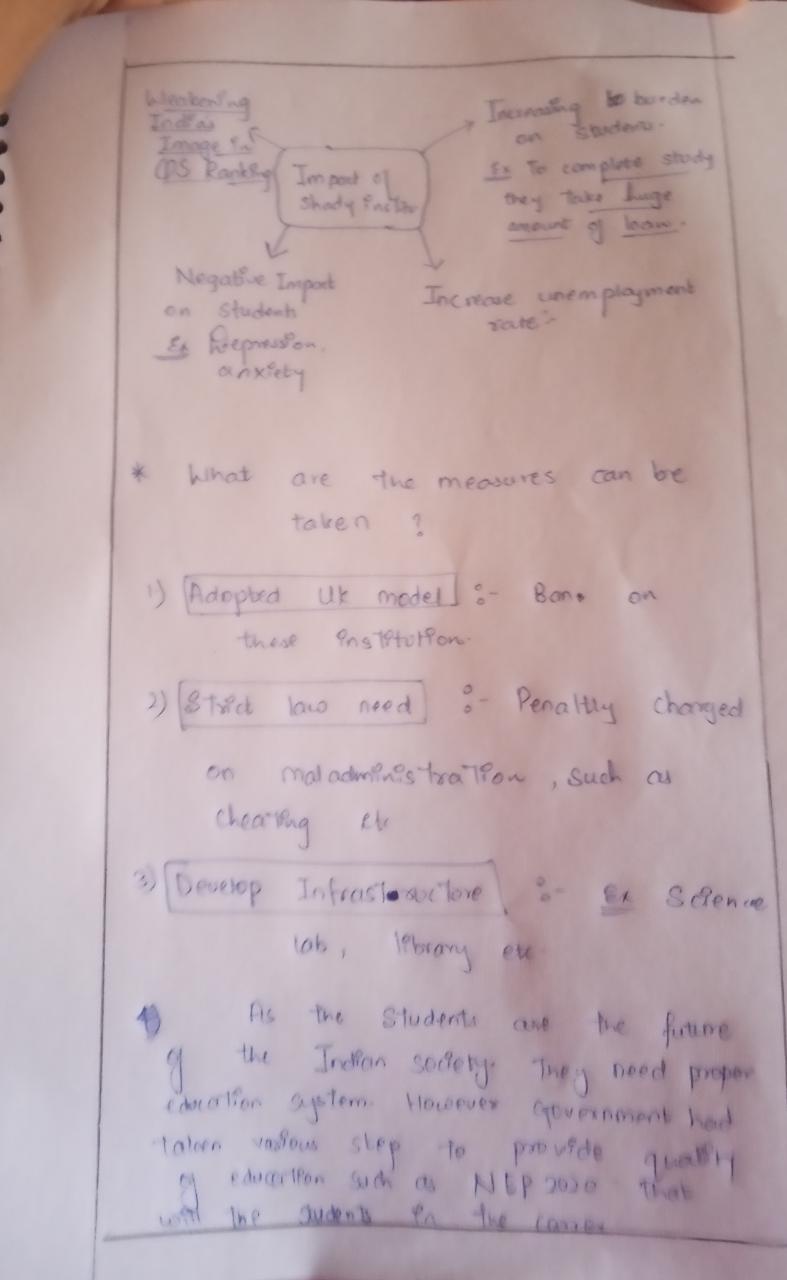 Weakening
India's
Image in
QS Ranking
Impact of
Shady factor
Increasing burden
on students.
Ex To complete study
they take huge
amount of loan.
Negative Impact
on students
Ex Depression,
anxiety
Increase unemployment
rate:-
* What are the measures can be
taken ?
1) Adopted UK model :- Ban on
these institution.
2) Strict law need :- Penaltly charged
on maladministration, such as
cheating etc
3) Develop Infrastructure :- Ex Science
lab, library etc
As the students are the future
of the Indian society. They need proper
education system. However Government had
taken various step to provide quality
of education such as NEP 2020 that
will the students in the career